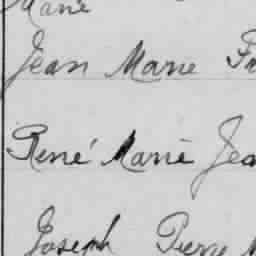 Marie
Jean Marie
René Marie Jea
Joseph Pierre